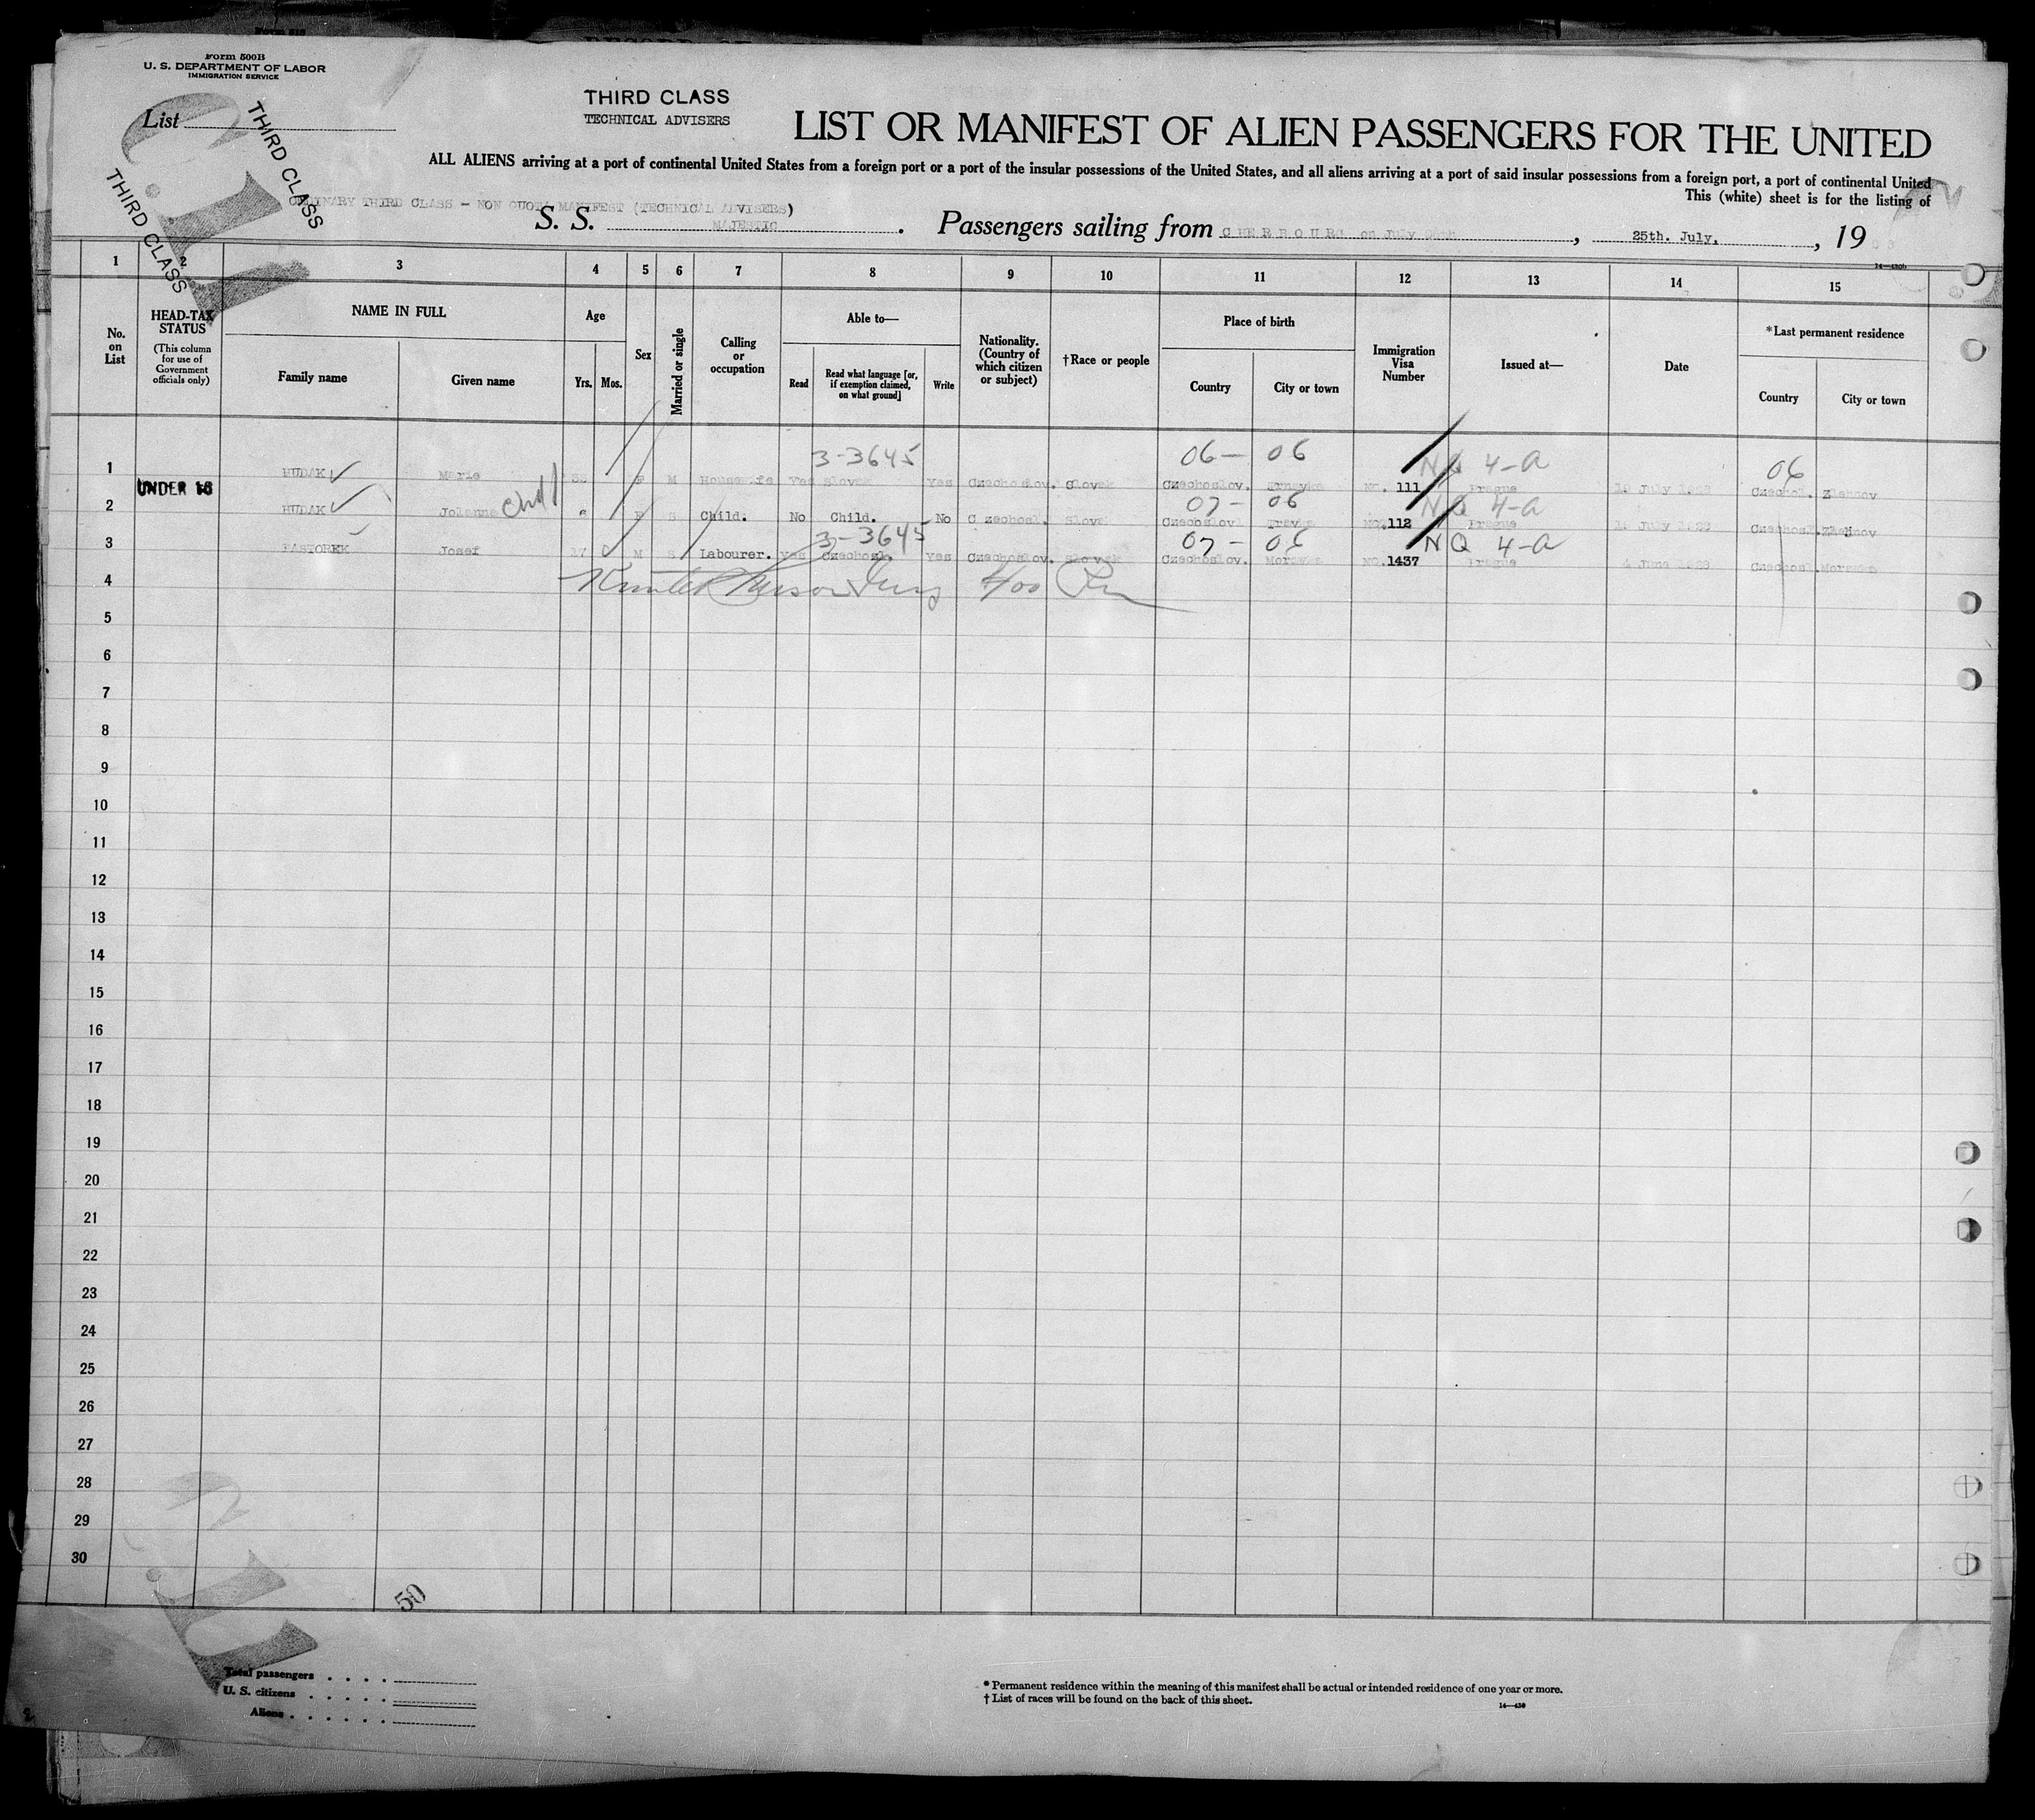 Form 500B
U. S. DEPARTMENT OF LABOR
IMMIGRATION SERVICE
List
THIRD CLASS
THIRD CLASS
THIRD CLASS
TECHNICAL ADVISERS
LIST OR MANIFEST OF ALIEN PASSENGERS FOR THE UNITED
ALL ALIENS arriving at a port of continental United States from a foreign port or a port of the insular possessions of the United States, and all aliens arriving at a port of said insular possessions from a foreign port, a port of continental United
This (white) sheet is for the listing of
THIRD CLASS - NON QUOTA MANIFEST (TECHNICAL ADVISERS)
S. S. MAJESTIC. Passengers sailing from CHERBOURG on July, 25th. July., 19
14-430b
1 2 3 4 5 6 7 8 9 10 11 12 13 14 15
No. on List
HEAD-TAX STATUS
(This column for use of Government officials only)
NAME IN FULL
Family name Given name
Age
Yrs. Mos.
Sex
Married or single
Calling or occupation
Able to—
Read
Read what language [or, if exemption claimed, on what ground]
Write
Nationality. (Country of which citizen or subject)
†Race or people
Place of birth
Country City or town
Immigration Visa Number
Issued at—
Date
*Last permanent residence
Country City or town
3-3645 06- 06 NQ 4-A 06
1 HUDAK Marie F M Housewife Yes Slovak Yes Czechoslov. Slovak Czechoslov. No. 111 Prague July
UNDER 16 07- 06 NQ 4-A
2 HUDAK child F S Child. No Child. No Czechosl. Slovak Czechoslov No. 112 Prague July
3-3645 07- 06 NQ 4-A
3 PASTOREK Josef 17 M S Labourer. Yes Czechosl. Yes Czechoslov. Slovak Czechoslov. No. 1437 Prague June
4
5
6
7
8
9
10
11
12
13
14
15
16
17
18
19
20
21
22
23
24
25
26
27
28
29
30
50
Total passengers
U. S. citizens
Aliens
* Permanent residence within the meaning of this manifest shall be actual or intended residence of one year or more.
† List of races will be found on the back of this sheet.
14-430